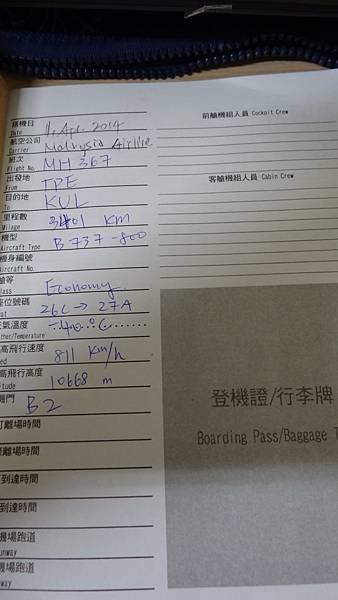 搭機日 11 Apr. 2014
Date
航空公司 Malaysia Airline
Carrier
班次 MH 367
Flight No.
出發地 TPE
From
目的地 KUL
To
里程數 3401 KM
Milage
機型 B 737-800
Aircraft Type
機身編號
Aircraft No.
艙等 Economy
lass
座位號碼 26C → 27A
at
天氣溫度
ther/Temperature
高飛行速度 811 Km/h
ed
高飛行高度 10668 m
itude
機門 B2
離場時間
離場時間
到達時間
到達時間
機場跑道
unway
機場跑道
way
前艙機組人員 Cockpit Crew
客艙機組人員 Cabin Crew
登機證/行李牌
Boarding Pass/Baggage T